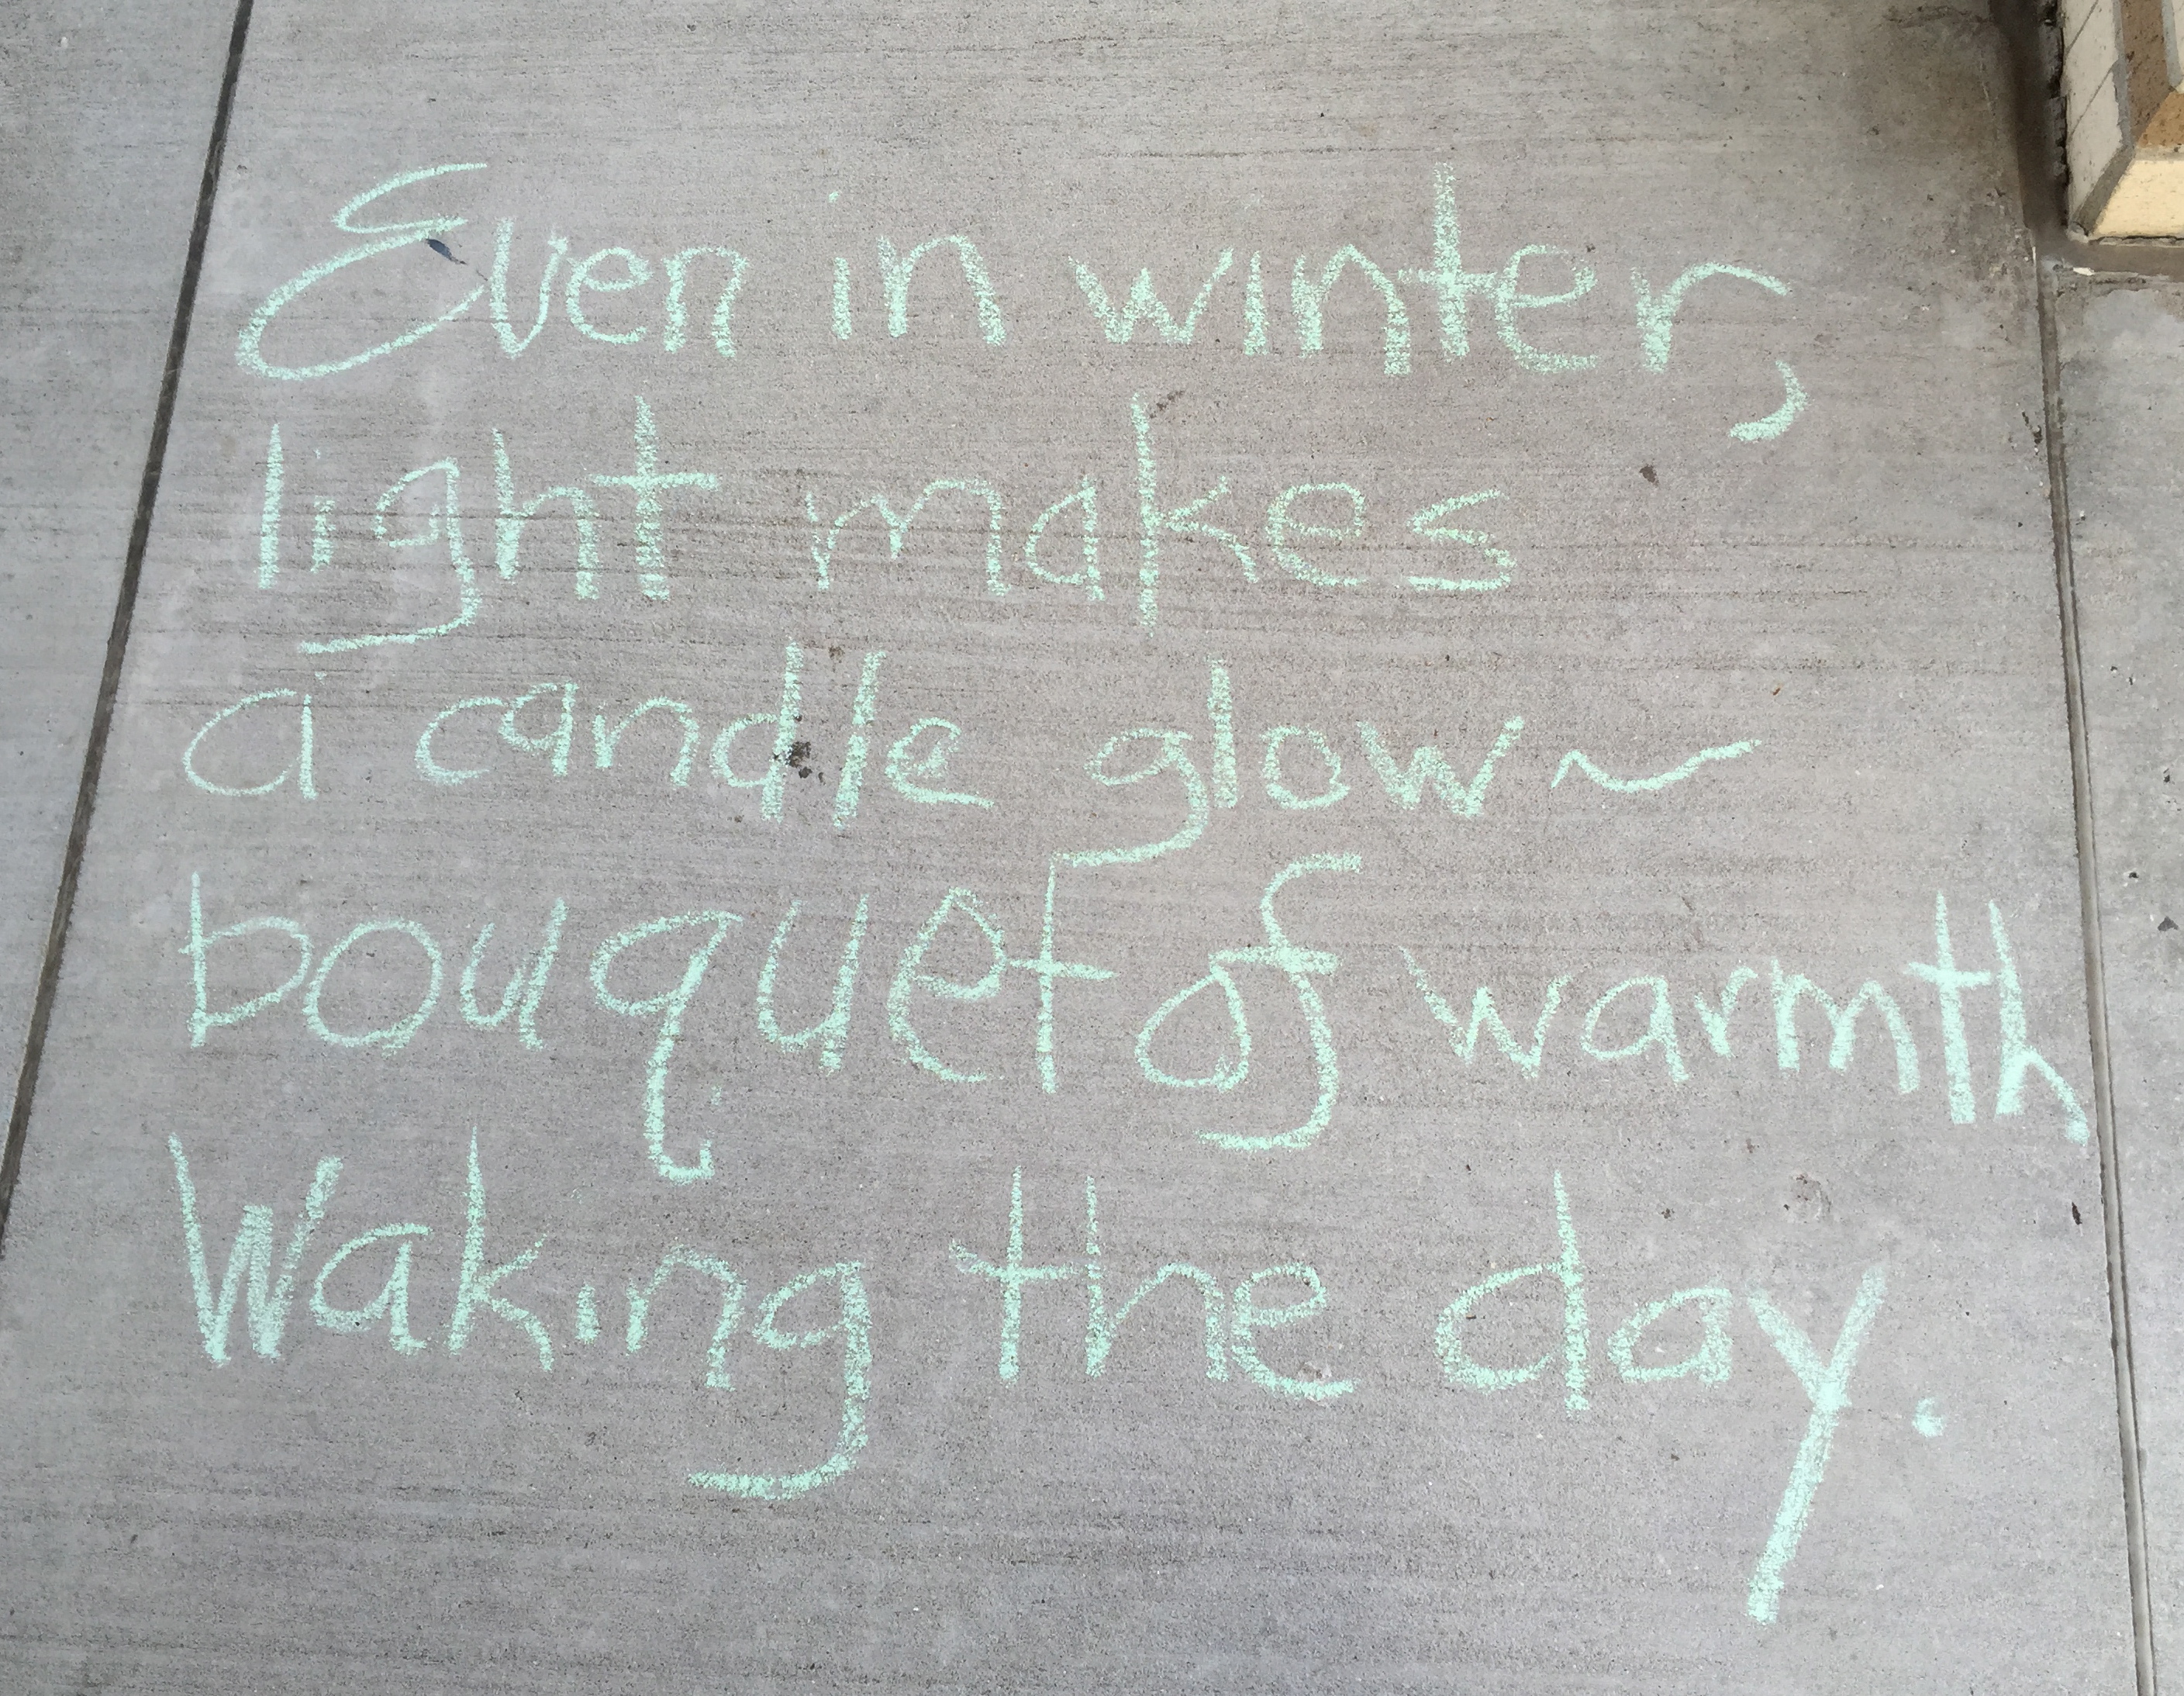 Even in winter,
light makes
a candle glow~
bouquet of warmth
Waking the day.